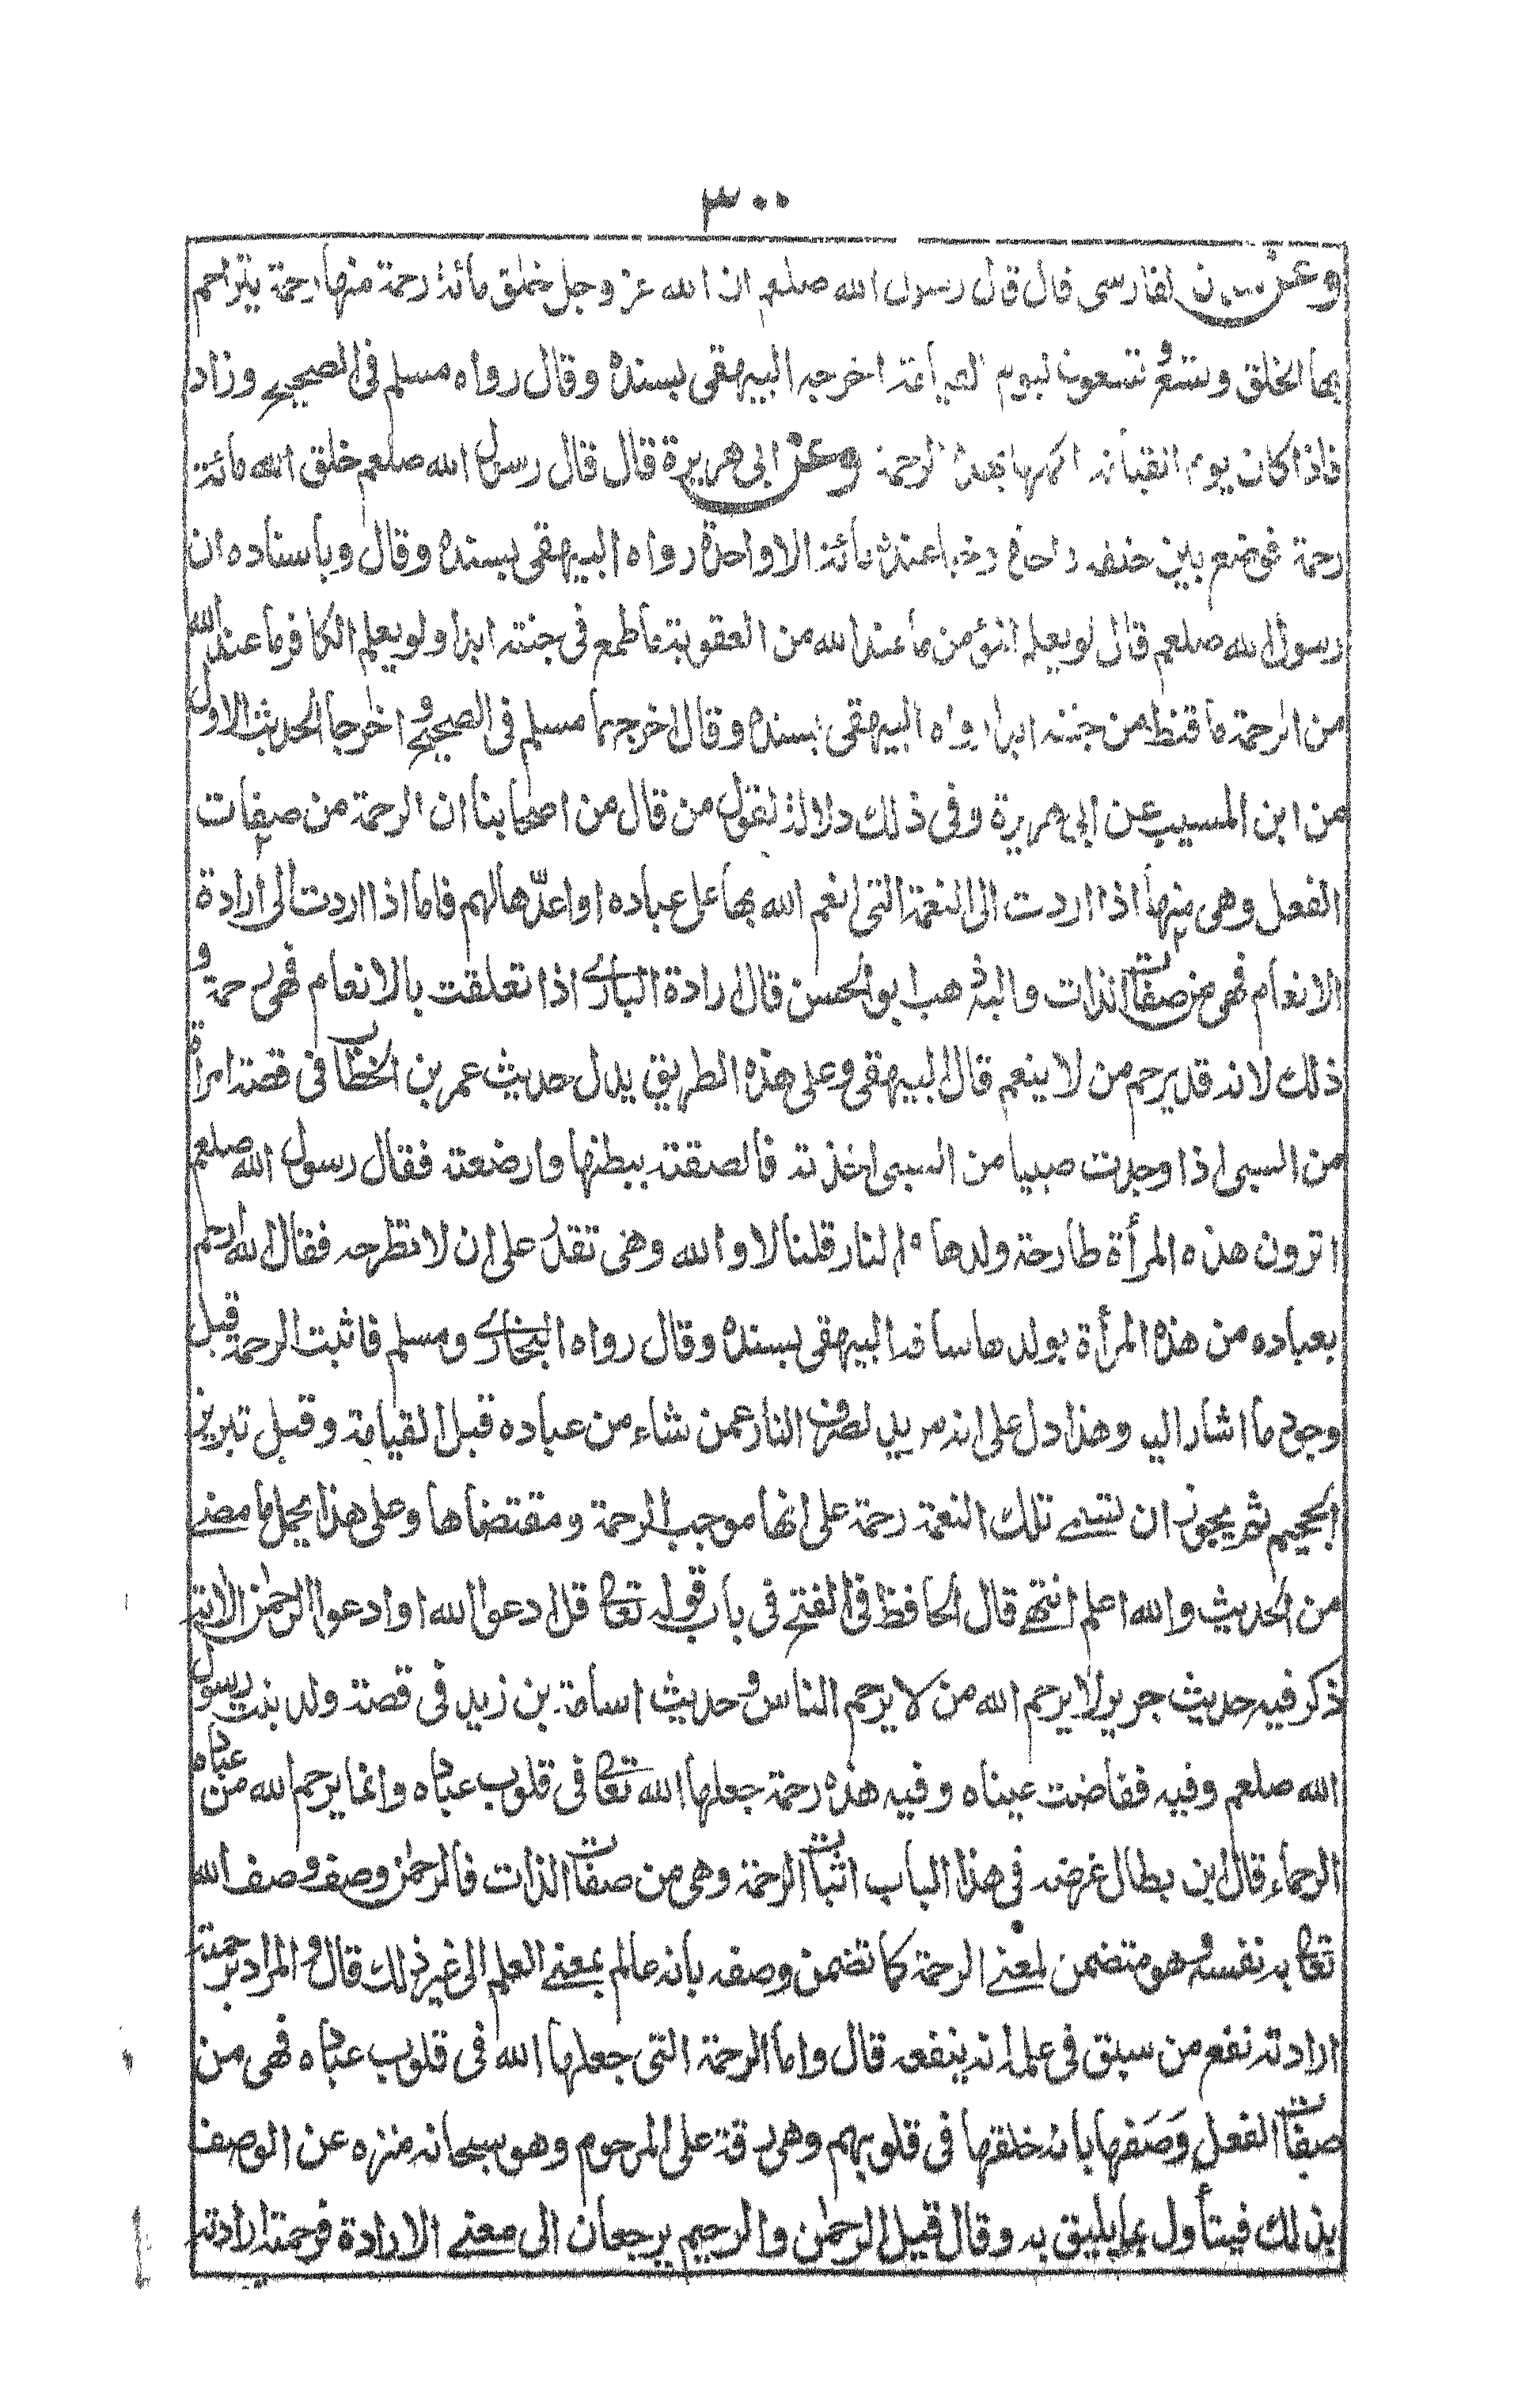 ٣٠٠
وعن سلمان الفارسى قال قال رسول الله صلعم ان الله عز وجل خلق مائة رحمة منها رحمة يتراحم
بها الخلق وتسعة وتسعون ليوم القيامة اخرجه البيهقى بسنده وقال رواه مسلم فى الصحيح وزاد
فاذا كان يوم القيامة اكملها بهذه الرحمة وعن ابى هريرة قال قال رسول الله صلعم خلق الله مائة
رحمة فوضع بين خلقه واحدة وخبأ عنده مائة الا واحدة رواه البيهقى بسنده وقال وباسناده ان
رسول الله صلعم قال لو يعلم المؤمن ما عند الله من العقوبة ما طمع فى جنته ابدا ولو يعلم الكافر ما عند الله
من الرحمة ما قنط من جنته ابدا رواه البيهقى بسنده وقال اخرجهما مسلم فى الصحيح و اخرجا الحديث الاول
من ابن المسيب عن ابى هريرة وفى ذلك دلالة لقول من قال من اصحابنا ان الرحمة من صفات
الفعل وهى منها اذا اردت الى النعمة التى انعم الله بها على عباده او اعدّها لهم فاما اذا اردت الى ارادة
الانعام فهى من صفات الذات واليه ذهب ابو الحسن قال ارادة البارى اذا تعلقت بالانعام فهى رحمة و
ذلك لانه قد يرحم من لا ينعم قال البيهقى وعلى هذه الطريق يدل حديث عمر بن الخطاب فى قصة امرأة
من السبى اذا وجدت صبيا من السبى اخذته فالصقته ببطنها وارضعته فقال رسول الله صلعم
اترون هذه المرأة طارحة ولدها فى النار قلنا لا والله وهى تقدر على ان لا تطرحه فقال الله ارحم
بعباده من هذه المرأة بولدها ساقه البيهقى بسنده وقال رواه البخارى ومسلم فاثبت الرحمة قبل
وجود ما اشار اليه وهذا دل على انه مريد لصرف النار عمن شاء من عباده قبل القيامة وقبل تبريز
الجحيم ثم يجوز ان تسمى تلك النعمة رحمة على انها موجب الرحمة ومقتضاها وعلى هذا يحمل ما مضى
من الحديث والله اعلم انتهى قال الحافظ فى الفتح فى باب قوله تعالى قل ادعوا الله او ادعوا الرحمن الاية
ذكر فيه حديث جرير لا يرحم الله من لا يرحم الناس وحديث اسامة بن زيد فى قصة ولد بنت رسول
الله صلعم وفيه ففاضت عيناه وفيه هذه رحمة جعلها الله تعالى فى قلوب عباده وانما يرحم الله من عباده
الرحماء قال ابن بطال غرضه فى هذا الباب اثبات الرحمة وهى من صفات الذات فالرحمن وصف وصف الله
تعالى به نفسه وهو متضمن لمعنى الرحمة كما تضمن وصفه بانه عالم بمعنى العلم الى غير ذلك قال والمراد برحمته
ارادته نفع من سبق فى علمه انه ينفعه قال واما الرحمة التى جعلها الله فى قلوب عباده فهى من
صفات الفعل وَصَفها بانه خلقها فى قلوبهم وهى رقة على المرحوم وهو سبحانه منزه عن الوصف
بذلك فيتأول بما يليق به وقال قيل الرحمن والرحيم يرجعان الى معنى الارادة فرحمته ارادته